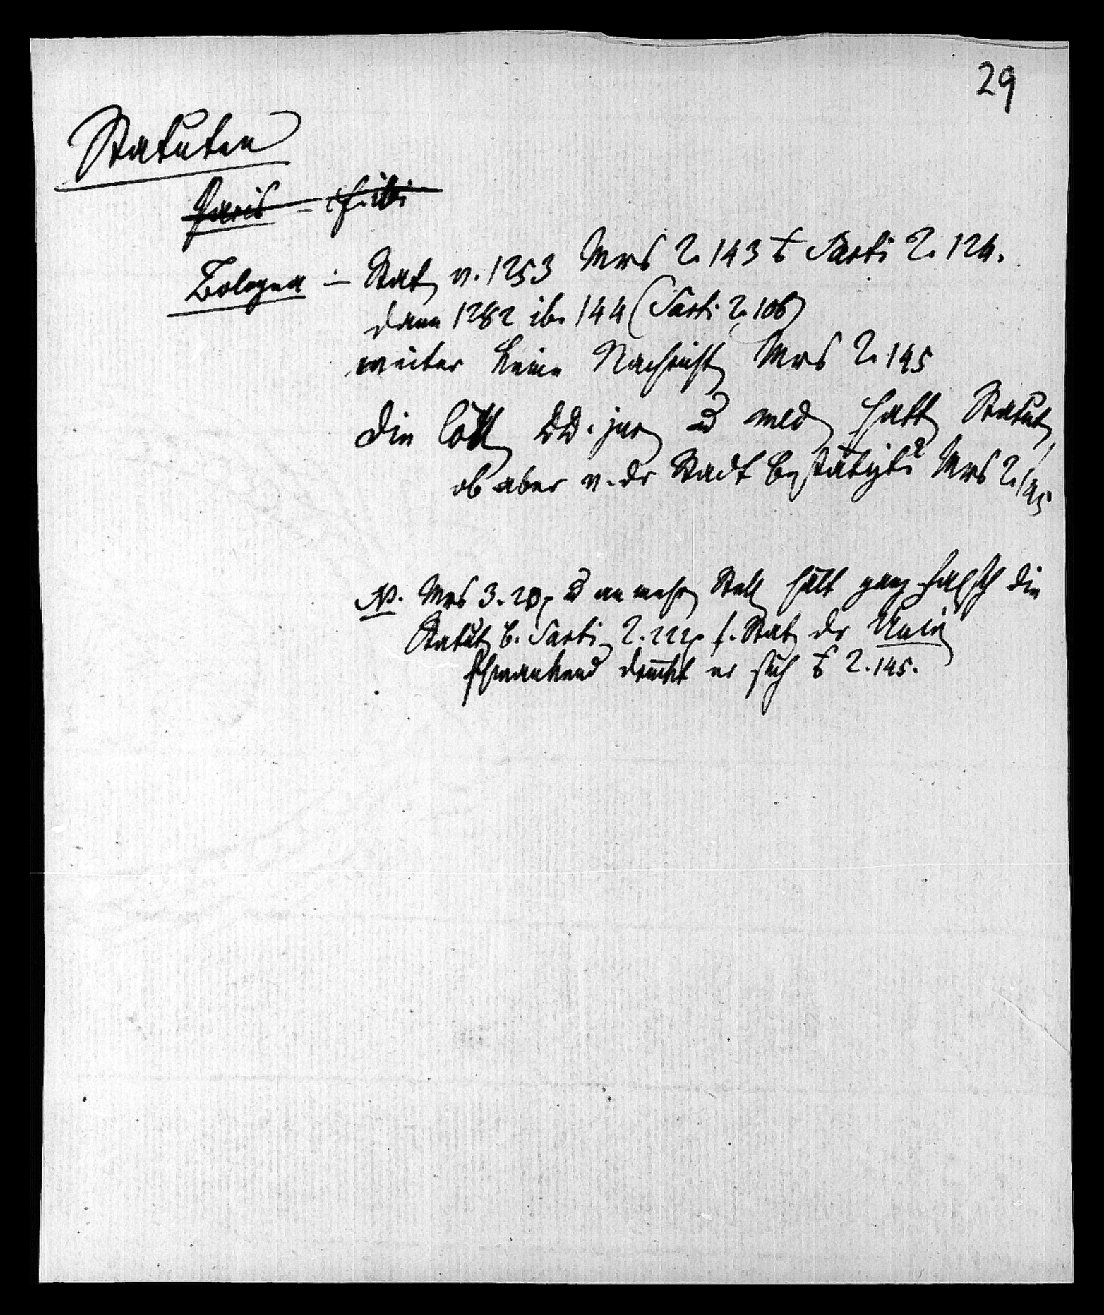 29
Statuten
Paris –
Bologna – Stat. v. 1253 Mrs 2. 143 Sarti 2. 124.
dann 1282 ib. 144 (Sarti 2. 106)
weiter keine Nachricht Mrs 2. 145
die Coll DD. jur. u med. hatt Statut,
ob aber v. dr Stadt bestätigt? Mrs 2. 145
N. Mrs 3. u an mehr Stell hält ganz falsch die
Statut b. Sarti 2. 222 f. Stat dr Univ
schwankend drückt er sich 2. 145.